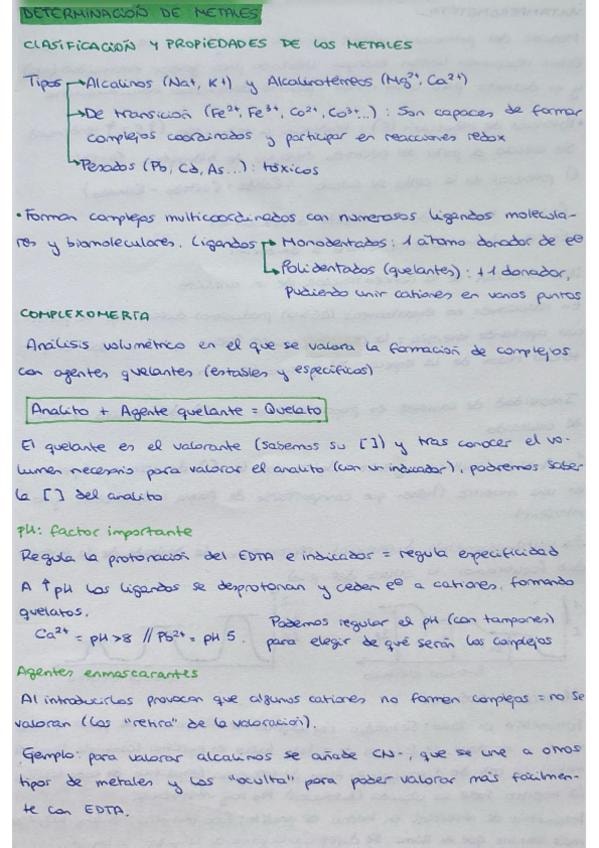 DETERMINACIÓN DE METALES
CLASIFICACIÓN Y PROPIEDADES DE LOS METALES
Tipos → Alcalinos (Na+, K+) y Alcalinotérreos (Mg2+, Ca2+)
→ De transición (Fe2+, Fe3+, Co2+, Co3+...) : Son capaces de formar
complejos coordinados y participar en reacciones redox
→ Pesados (Pb, Cd, As...) : tóxicos
• Forman complejos multicoordinados con numerosos ligandos molecula-
res y biomoleculares. Ligandos → Monodentados: 1 átomo donador de e⊖
→ Polidentados (quelantes) : +1 donador,
pudiendo unir cationes en varios puntos
COMPLEXOMERÍA
Análisis volumétrico en el que se valora la formación de complejos
con agentes quelantes (estables y específicos)
Analito + Agente quelante = Quelato
El quelante es el valorante (sabemos su [ ]) y tras conocer el vo-
lumen necesario para valorar el analito (con un indicador), podremos saber
la [ ] del analito
pH: factor importante
Regula la protonación del EDTA e indicador = regula especificidad
A ↑ pH los ligandos se desprotonan y ceden e⊖ a cationes, formando
quelatos.
Ca2+ = pH >8 // Pb2+ = pH 5.
Podemos regular el pH (con tampones)
para elegir de qué serán los complejos
Agentes enmascarantes
Al introducirlos provocan que algunos cationes no formen complejos = no se
valoran (los "retira" de la valoración).
Ejemplo: para valorar alcalinos se añade CN-, que se une a otros
tipos de metales y los "oculta" para poder valorar más fácilmen-
te con EDTA.